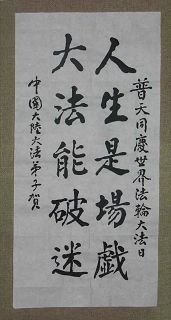 普天同慶世界法輪大法日
人生是場戲
大法能破迷
中國大陸大法弟子賀